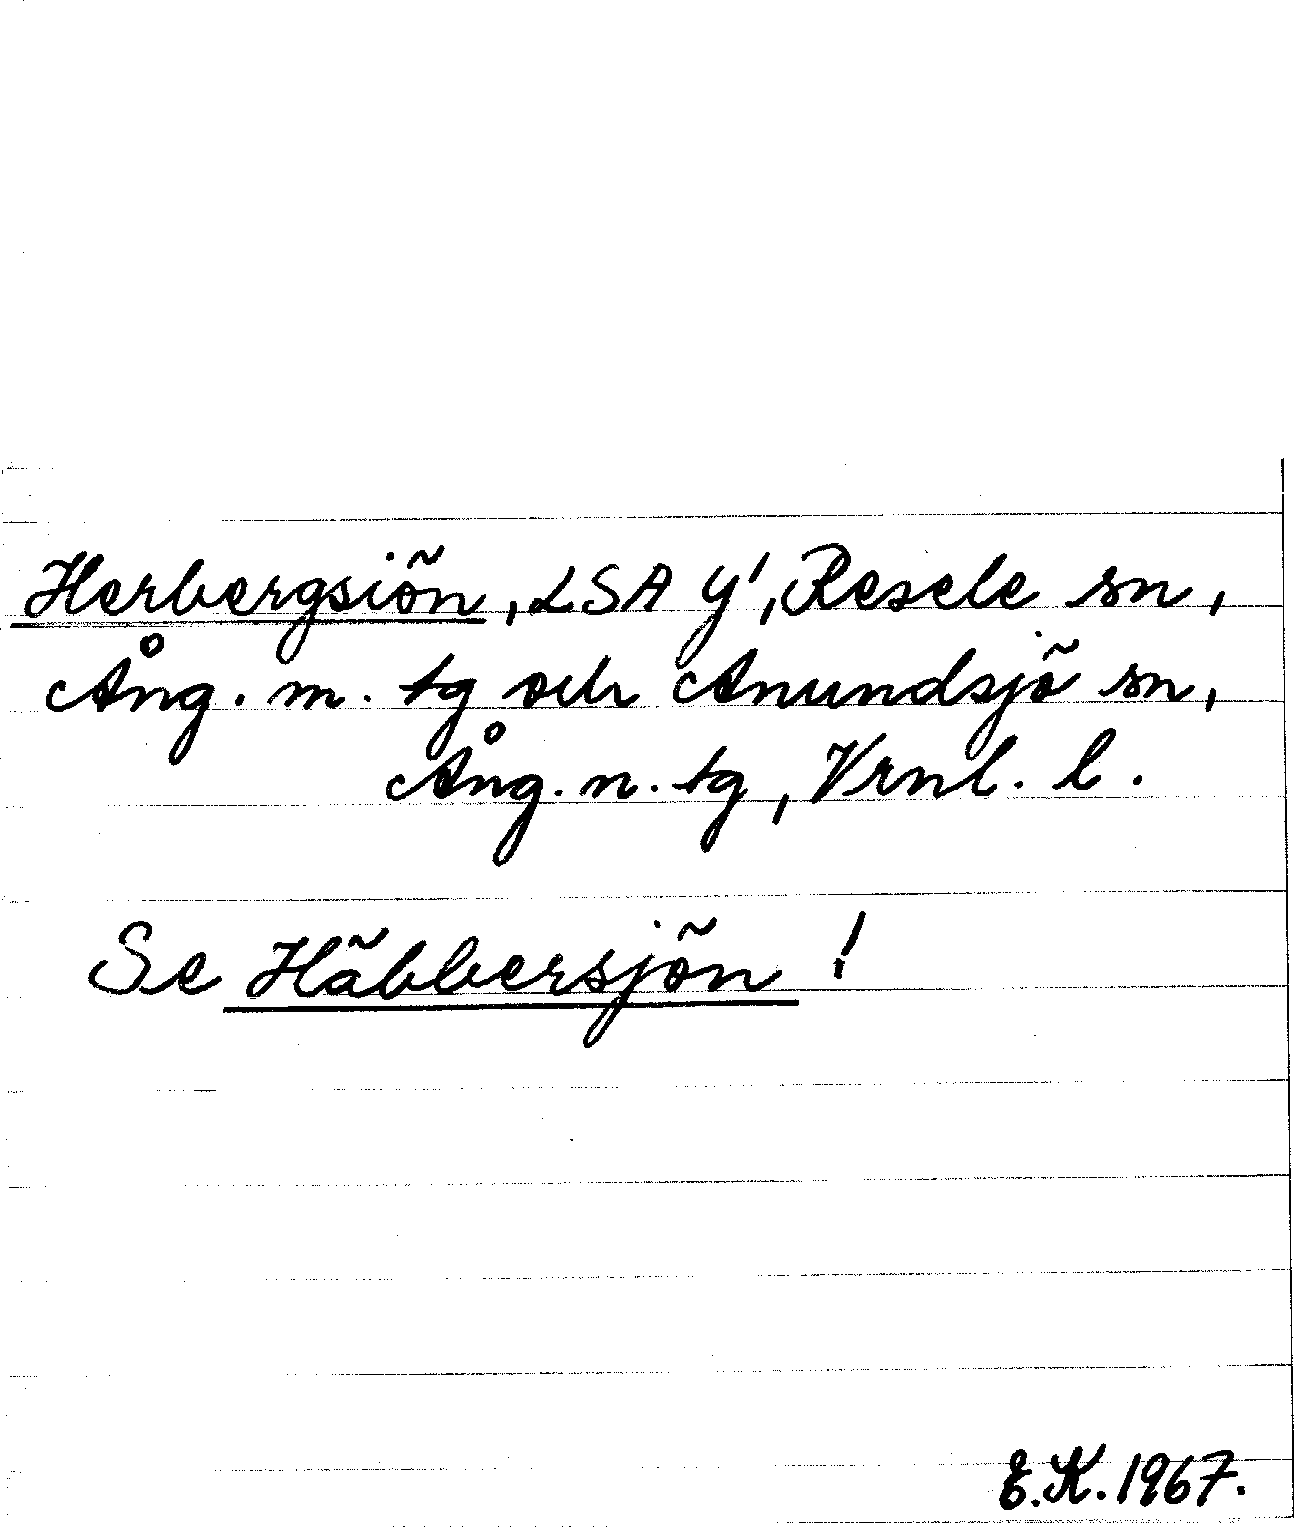 Herbergsiön, LSA Y', Resele sn,
Ång. m. tg och Anundsjö sn,
Ång. n. tg, Vrnl. l.
Se Häbbersjön !
E.K. 1967.